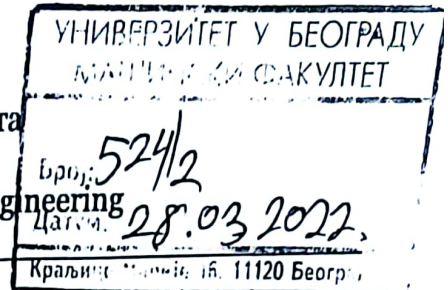 УНИВЕРЗИТЕТ У БЕОГРАДУ
МАШИНСКИ ФАКУЛТЕТ
та
Број: 524/2
gineering
Датум. 28.03 2022.
Краљице Марије 16. 11120 Београд